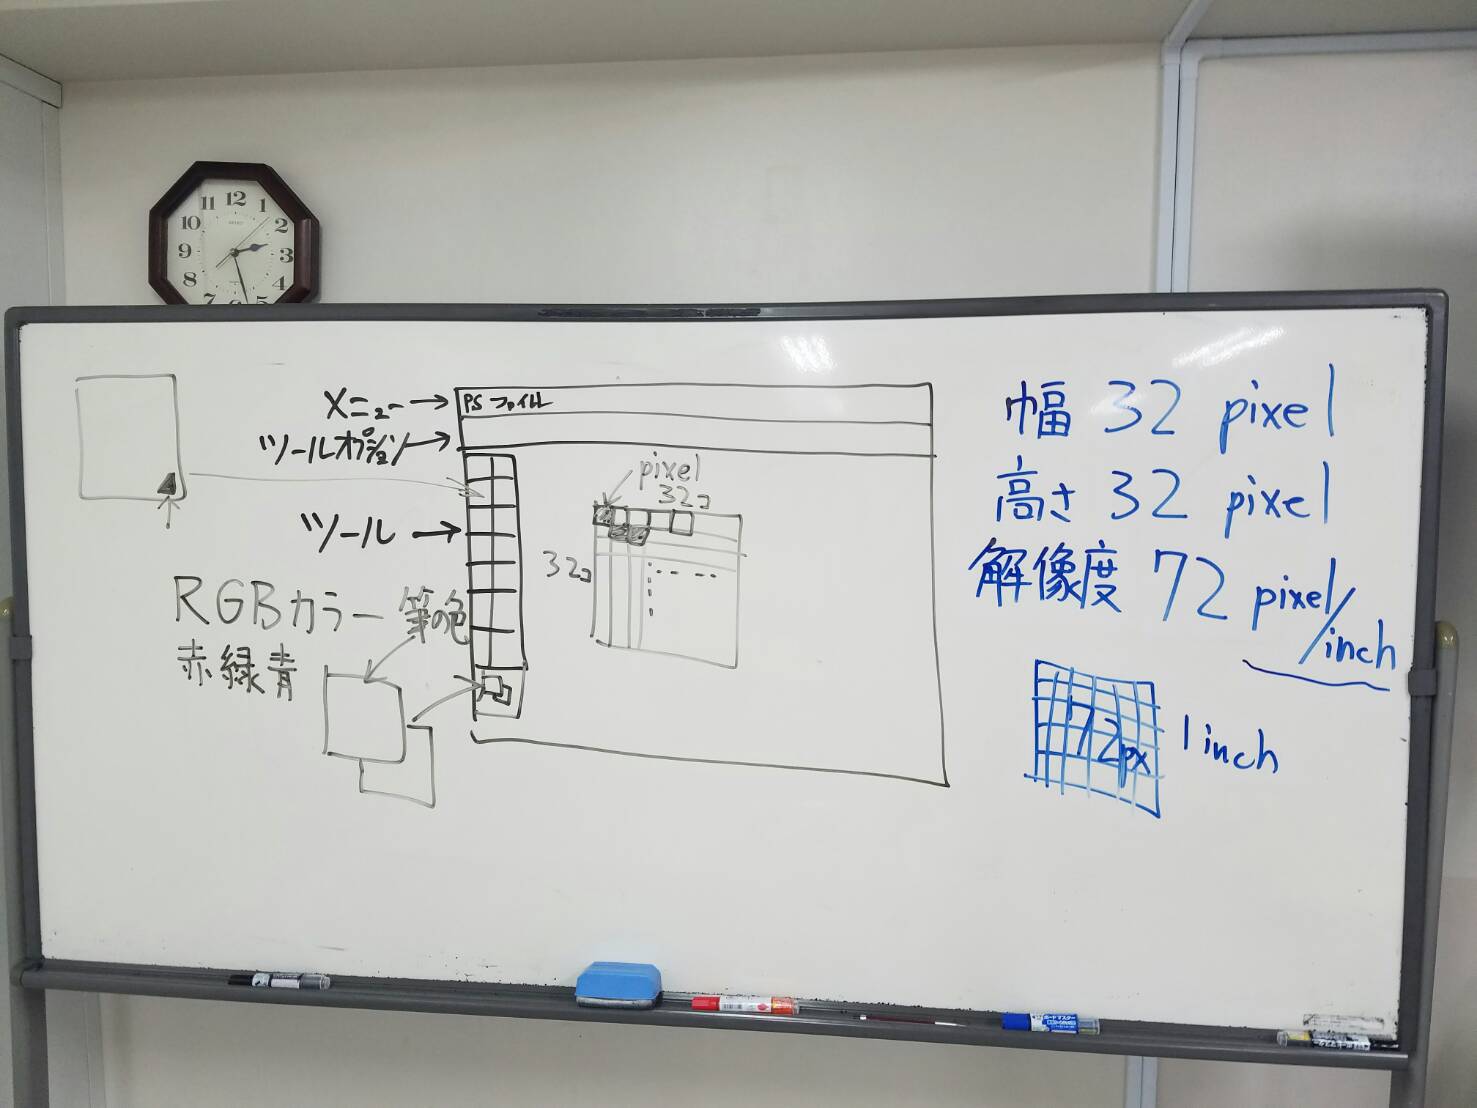 11 12 1
10 2
9 3
8 4
7 6 5
メニュー
PS ファイル
ツールオプション
ツール
pixel
32コ
32コ
RGBカラー
赤緑青
筆の色
幅 32 pixel
高さ 32 pixel
解像度 72 pixel/inch
72px
1 inch